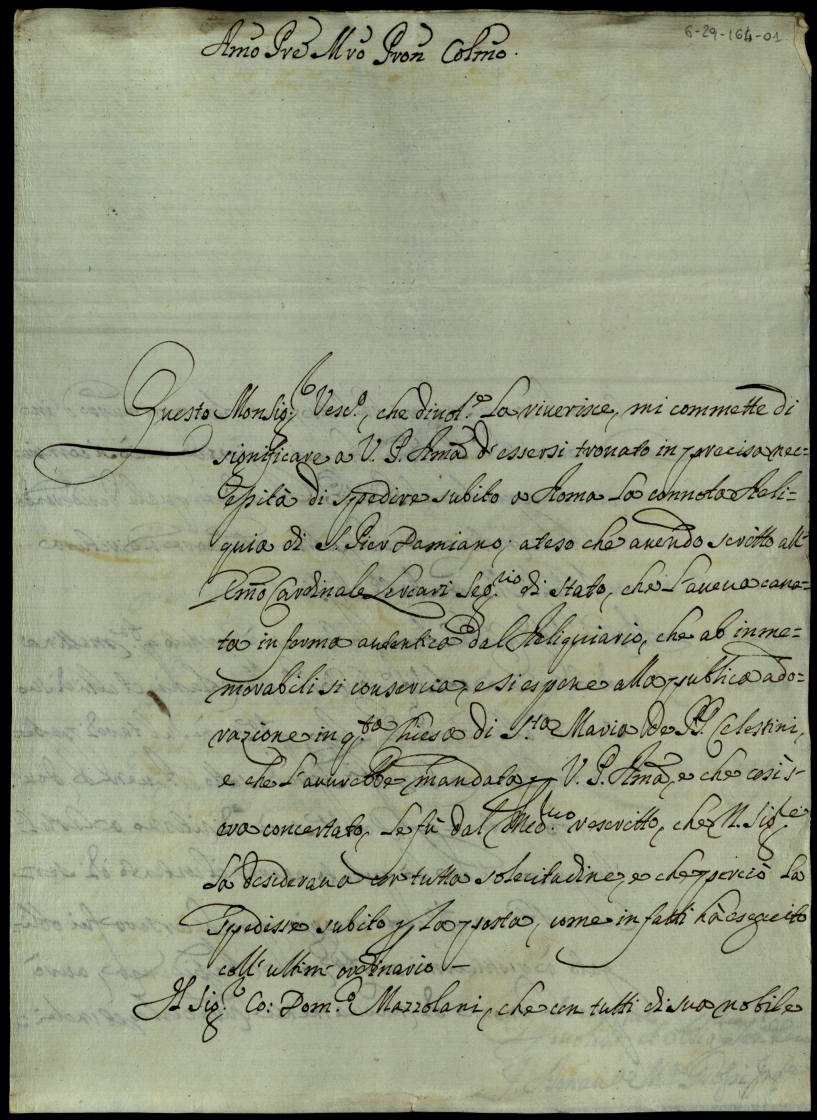 6-29-164-01
Rmo Pre Mro Pron Colmo.
Questo Monsig.r Vesc.o, che divot.e La riverisce, mi commette di
significare a V. P. Rma d'essersi trovato in precisa nec-
essità di spedire subito a Roma La connota Reli-
quia di S. Pier Damiano; ateso che avendo scritto all'
Emo Cardinale Lercari Seg.rio di Stato, che L'aveva cava-
ta in forma autentica dal Reliquiario, che ab inme-
morabili si conserva, e si espone alla publica ado-
razione in q.ta Chiesa di S.ta Maria de PP. Celestini,
e che L'avrebbe mandata p V. P. Rma, e che così s'
era concertato, Le fù dal Med.mo rescritto, che N. Sig.e
La desiderava con tutta solecitudine, e che perciò La
spedisse subito p La posta, come in fatti hà esequito
coll' ultim ordinario —
Il Sig.r Co: Dom.o Mazzolani, che con tutti di sua nobile